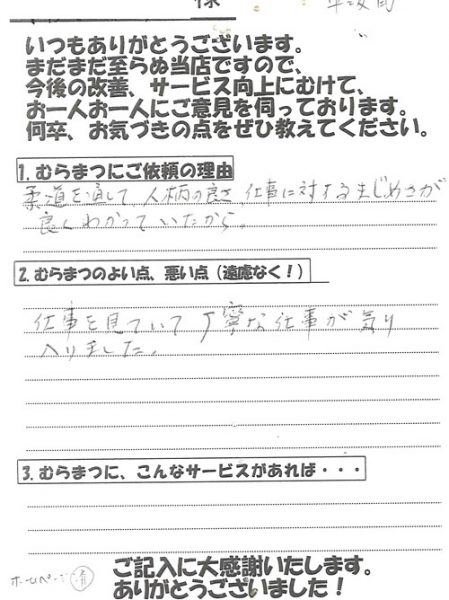 様
いつもありがとうございます。
まだまだ至らぬ当店ですので、
今後の改善、サービス向上にむけて、
お一人お一人にご意見を伺っております。
何卒、お気づきの点をぜひ教えてください。
1. むらまつにご依頼の理由
柔道を通して人柄の良さ、仕事に対するまじめさが
良くわかっていたから。
2. むらまつのよい点、悪い点(遠慮なく!)
仕事を見ていて丁寧な仕事が気り
入りました。
3. むらまつに、こんなサービスがあれば・・・
ホームページ 済
ご記入に大感謝いたします。
ありがとうございました!